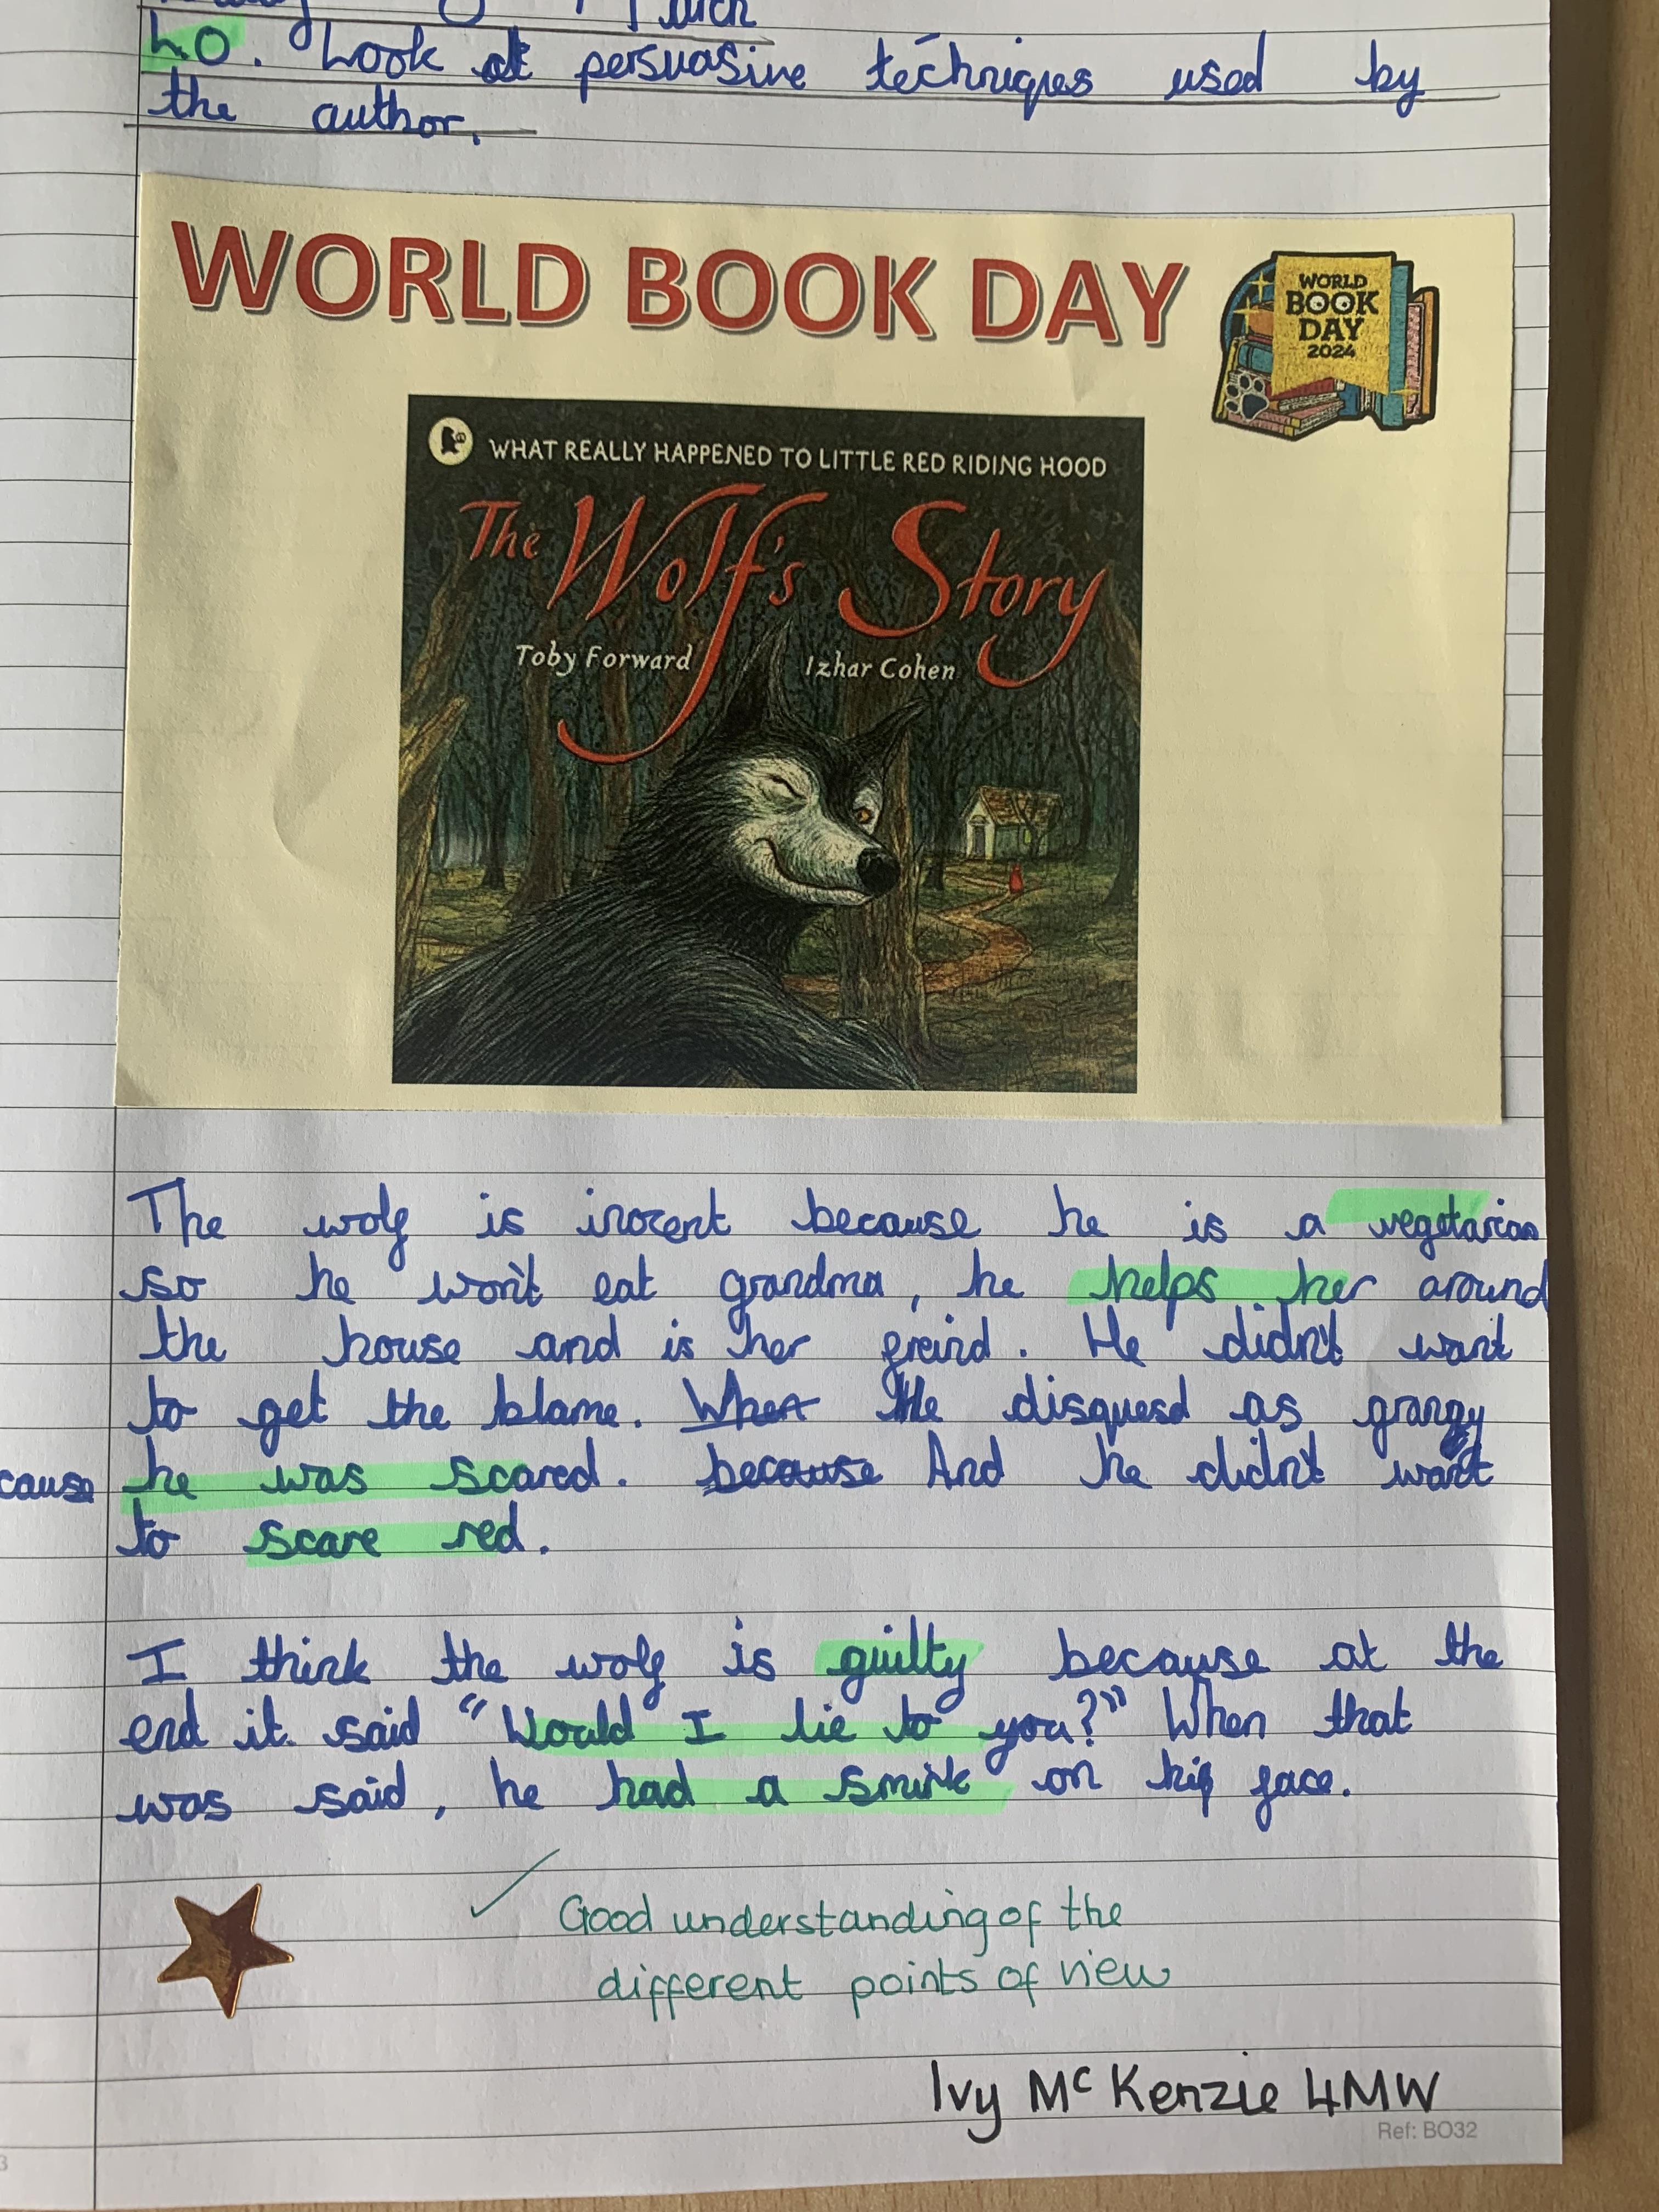 LO. Look at persuasive techniques used by
the author.
WORLD BOOK DAY
WORLD
BOOK
DAY
2024
WHAT REALLY HAPPENED TO LITTLE RED RIDING HOOD
The Wolf's Story
Toby Forward Izhar Cohen
The wolf is inocent because he is a vegetarian
so he won't eat grandma, he helps her around
the house and is her freind. He didn't want
to get the blame. When He disquesd as grangy
cause he was scared. because And he didn't want
to scare red.
I think the wolf is guilty because at the
end it said "Would I lie to you?" When that
was said, he had a smirk on his face.
Good understanding of the
different points of view
Ivy McKenzie 4MW
Ref: BO32